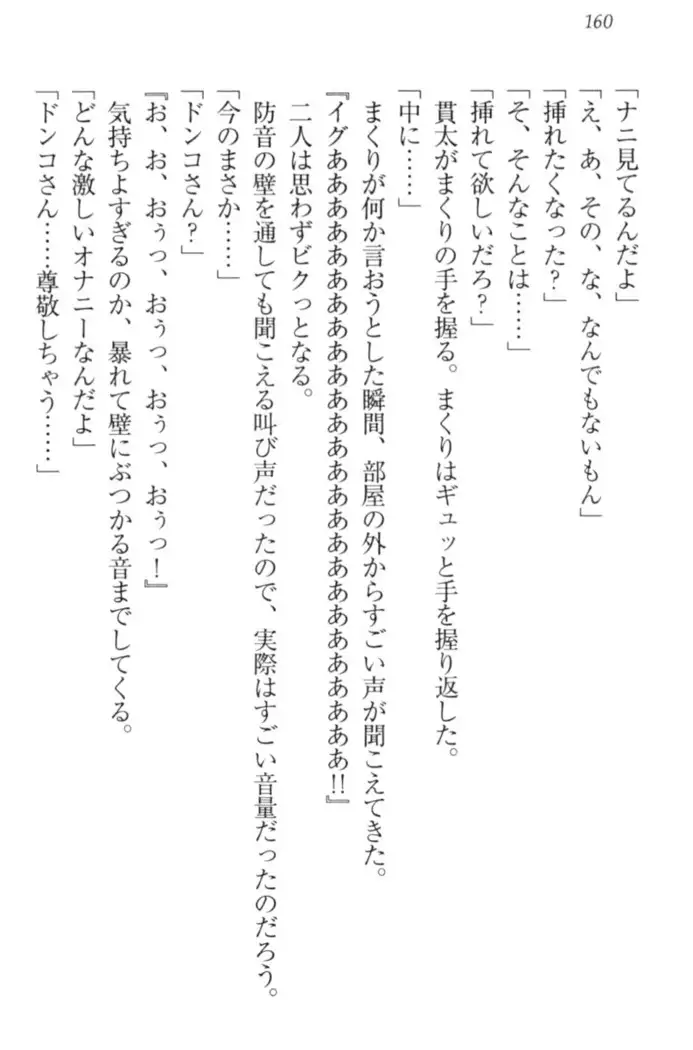 160
「ナニ見てるんだよ」
「え、あ、その、な、なんでもないもん」
「挿れたくなった?」
「そ、そんなことは……」
「挿れて欲しいだろ?」
貫太がまくりの手を握る。まくりはギュッと手を握り返した。
「中に……」
まくりが何か言おうとした瞬間、部屋の外からすごい声が聞こえてきた。
『イグああああああああああああああああああああああああああ!!』
二人は思わずビクっとなる。
防音の壁を通しても聞こえる叫び声だったので、実際はすごい音量だったのだろう。
「今のまさか……」
「ドンコさん?」
『お、お、おぅっ、おぅっ、おぅっ、おぅっ!』
気持ちよすぎるのか、暴れて壁にぶつかる音までしてくる。
「どんな激しいオナニーなんだよ」
「ドンコさん……尊敬しちゃう……」